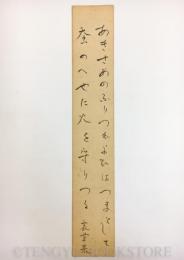 あきさめのふりつぐよひはつまとして
蚕のへやに火を守りつる
TENGYU BOOKSTORE